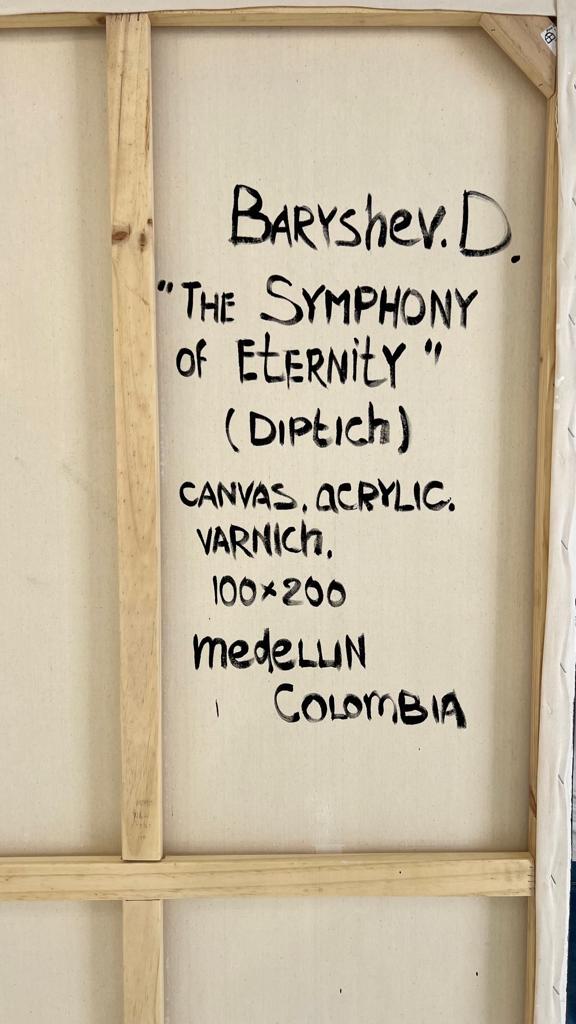 BARYshev. D.
"THE SYMPHONY
of EtERNitY"
(DIPtICh)
CANVAS. aCRYLIC.
VARNICh.
100×200
medeLLIN
COLOmBIA